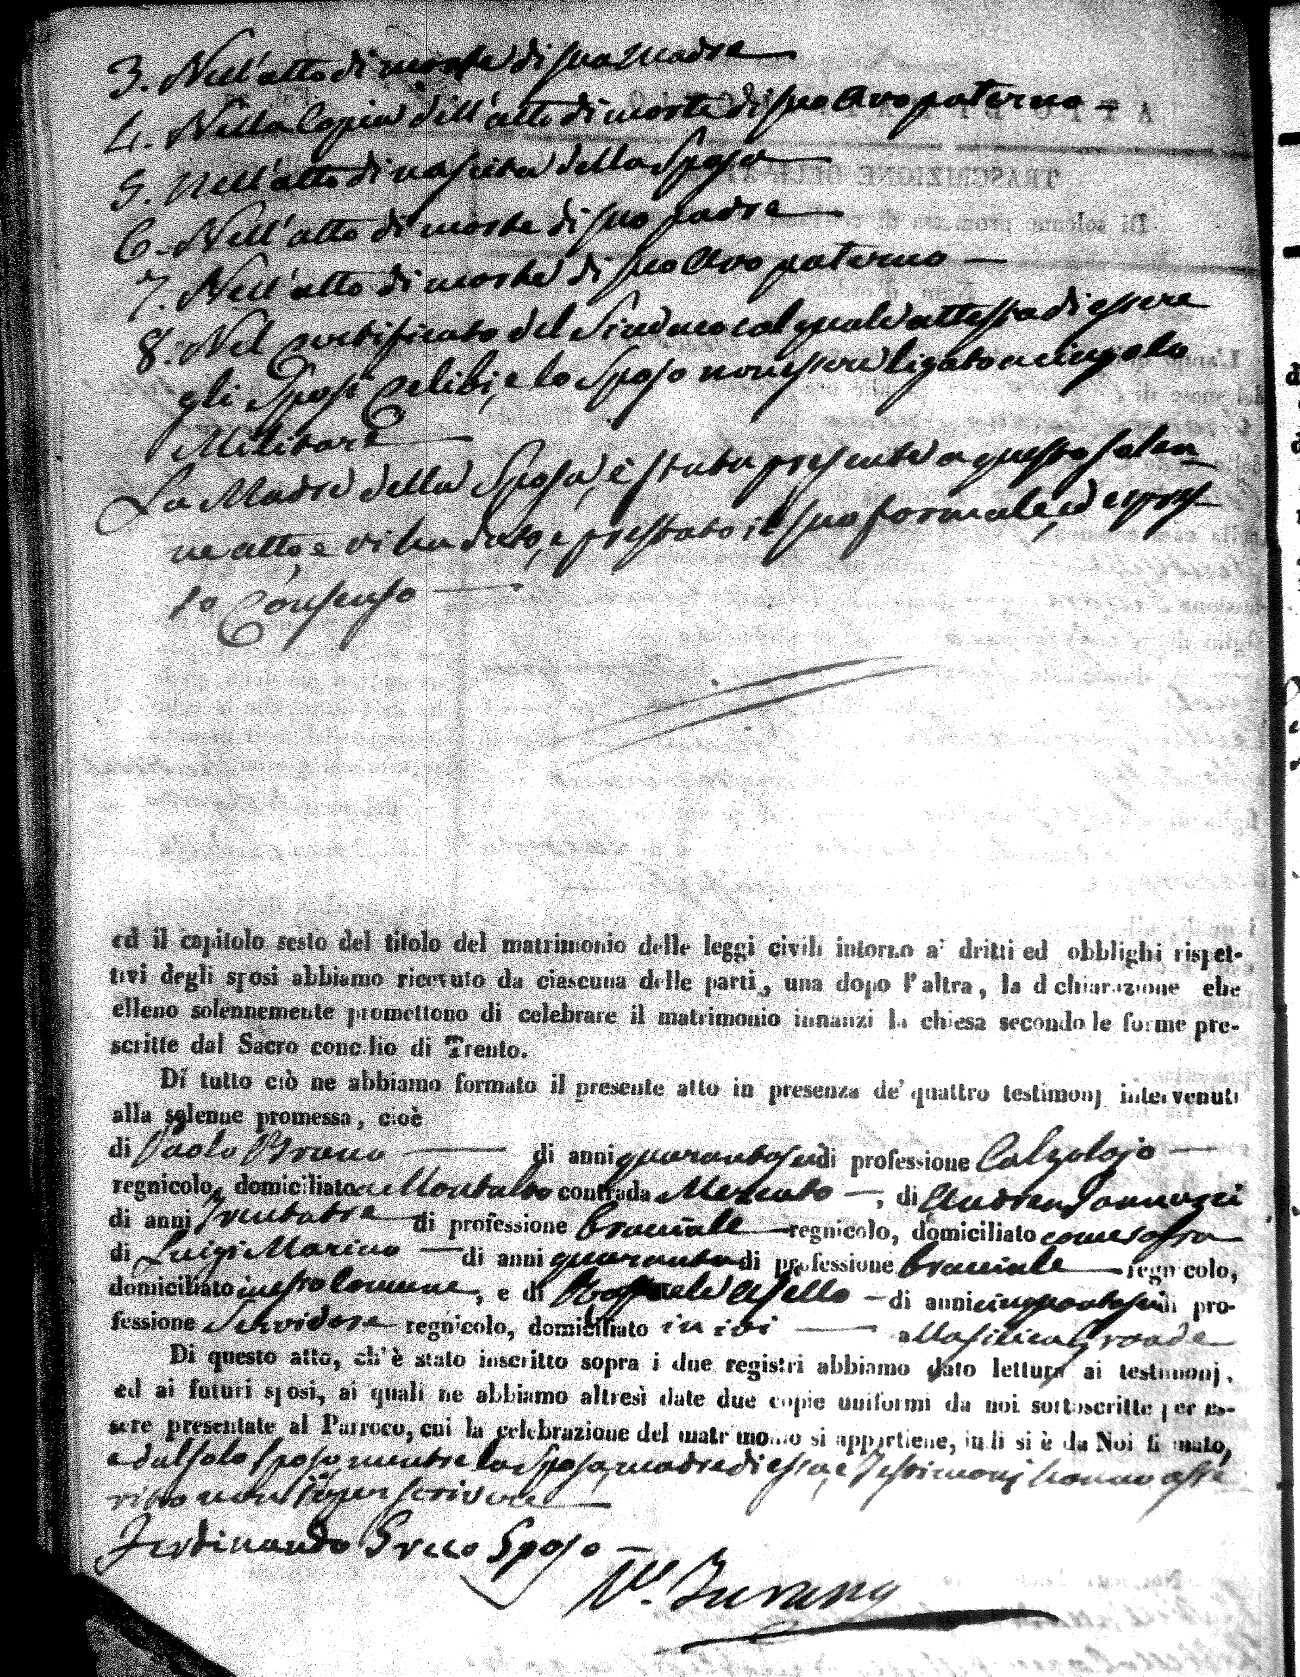 3. Nell'atto di morte di sua Madre
4. Nella Copia dell'atto di morte di suo Avo paterno
5. Nell'atto di nascita della Sposa
6. Nell'atto di morte di suo padre
7. Nell'atto di morte di suo Avo paterno
8. Nel Certificato del Sindaco col quale attesta di essere
gli Sposi Celibi, e lo Sposo non essere ligato a cingolo
Militare
La Madre della Sposa, è stata presente a questo solen-
ne atto e vi ha dato, e prestato il suo formale, ed espres-
so Consenso
ed il capitolo sesto del titolo del matrimonio delle leggi civili intorno a' dritti ed obblighi rispet-
tivi degli sposi abbiamo ricevuto da ciascuna delle parti, una dopo l'altra, la dichiarazione che
elleno solennemente promettono di celebrare il matrimonio innanzi la chiesa secondo le forme pre-
scritte dal Sacro concilio di Trento.
Di tutto ciò ne abbiamo formato il presente atto in presenza de' quattro testimonj intervenuti
alla solenne promessa, cioè
di Paolo Bruno di anni quarantasei di professione Calzolajo
regnicolo, domiciliato a Montalto contrada Mercato, di Andrea Iannuzzi
di anni trentatre di professione bracciale regnicolo, domiciliato come sopra
di Luigi Marino di anni quaranta di professione bracciale regnicolo,
domiciliato in esto Comune, e di Raffaele Asello di anni cinquantasei di pro-
fessione Servidore regnicolo, domiciliato in ivi alla silica Grande
Di questo atto, ch'è stato inscritto sopra i due registri abbiamo dato lettura ai testimonj,
ed ai futuri sposi, ai quali ne abbiamo altresì date due copie uniformi da noi sottoscritte per es-
sere presentate al Parroco, cui la celebrazione del matrimonio si appartiene, indi si è da Noi firmato,
e dal solo sposo, mentre la Sposa, madre di essa, e Testimonj hanno asse
rito non saper scrivere
Ferdinando Greco Sposo